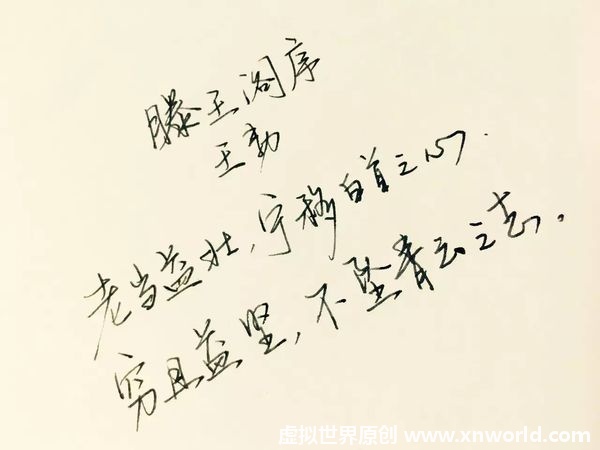 滕王阁序
王勃
老当益壮，宁移白首之心．
穷且益坚，不坠青云之志．
虚拟世界原创 www.xnworld.com